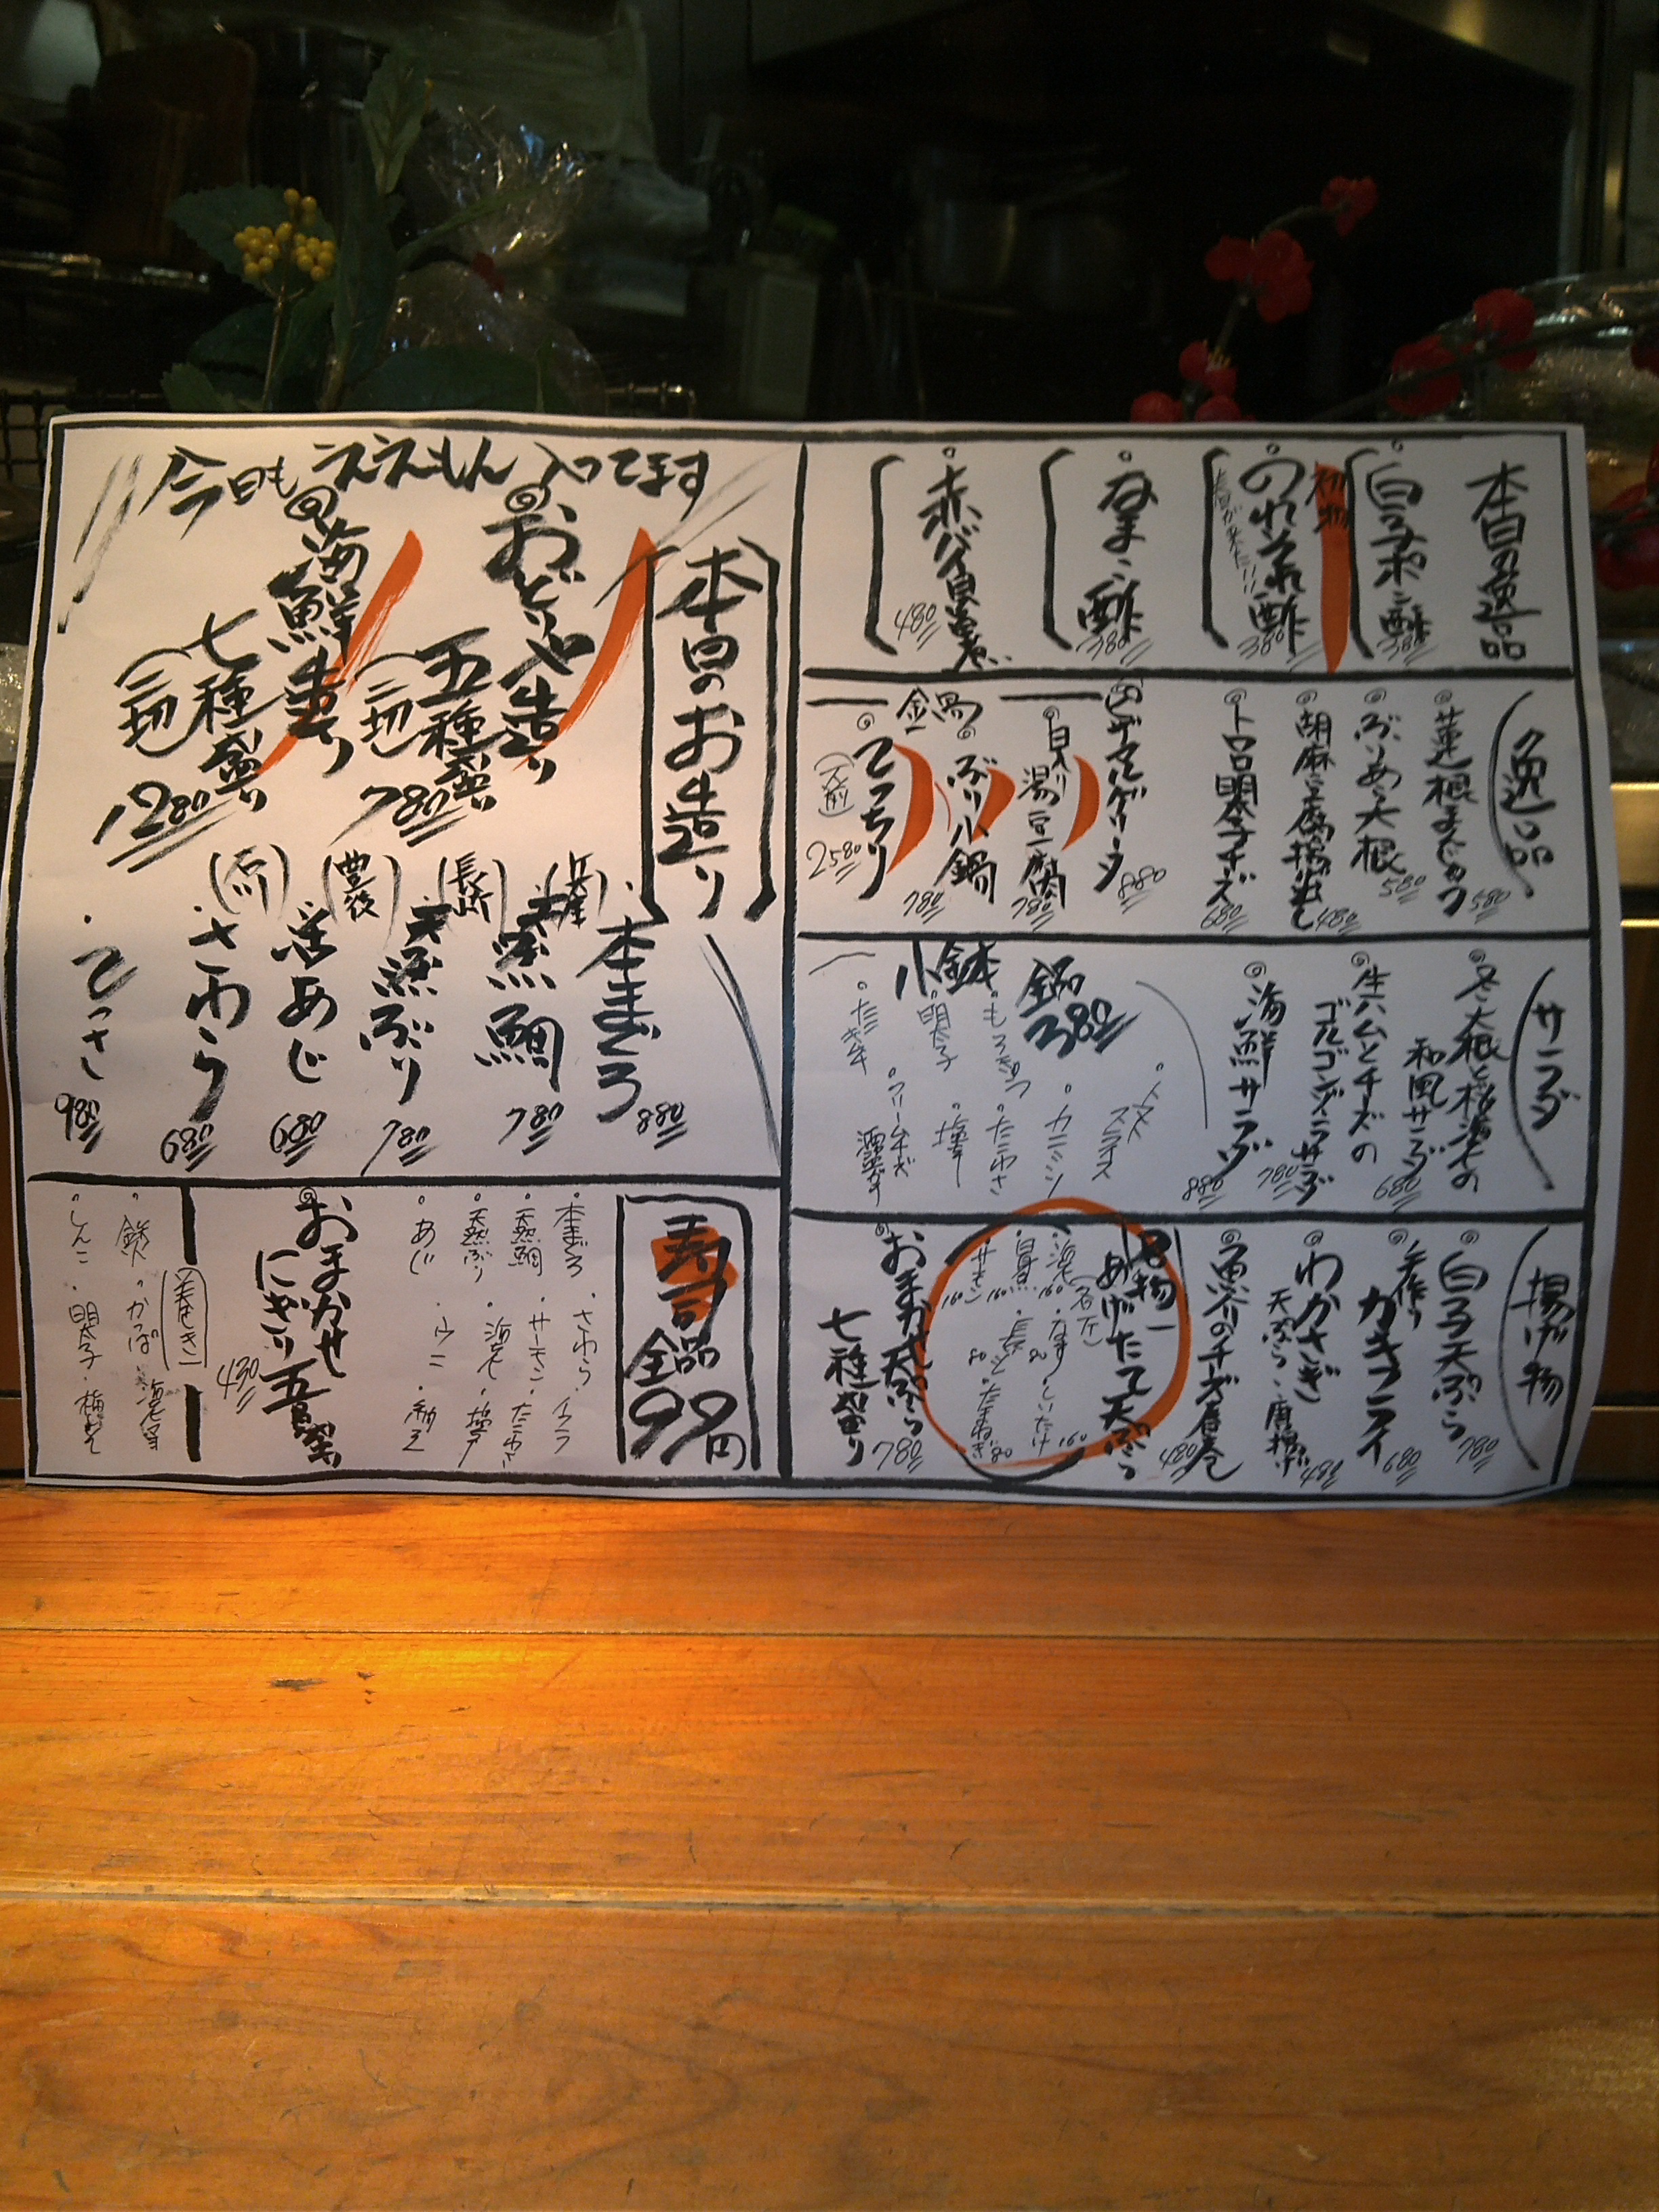 今日もええもん入ってます
本日のお造り
おどりや造り
五種盛り
(二切)
780
海鮮造り
七種盛り
(二切)
1280
本まぐろ
880
(兵庫)
天然鯛
780
(長崎)
天然ぶり
780
(豊後)
活あじ
680
さわら
680
てっさ
980
寿司
全品
99円
本まぐろ
さわら
イクラ
天然鯛
サーモン
たこわさ
天然ぶり
海老
あじ
ウニ
おまかせ
にぎり五貫
430
(巻き)
鉄火
かっぱ
しんこ
明太子
本日の逸品
白子ポン酢
380
初物
のれそれ酢
380
なまこ酢
380
赤バイ貝旨煮
480
逸品
蓮根まんじゅう
580
ぶりあら大根
580
胡麻豆腐揚げ出し
480
トロロ明太子チーズ
680
マルゲリータ
880
鍋
白入り
湯豆腐
780
ぶり小鍋
780
てっちり
(一人前)
2580
サラダ
冬大根と桜海老の
和風サラダ
680
生ハムとチーズの
ゴルゴンゾーラサラダ
780
海鮮サラダ
880
小鉢
380
トマト
スライス
カニミソ
もろきゅう
たこわさ
明太子
塩辛
クリームチーズ
酒盗がけ
揚げ物
白子天ぷら
780
手作り
かきフライ
680
わかさぎ
天ぷら・唐揚げ
480
魚介のチーズ春巻
480
名物
あげたて天ぷら
海老
160
なす
80
しいたけ
160
白身魚
160
長いも
80
たまねぎ
80
サーモン
160
おまかせ天ぷら
七種盛り
780